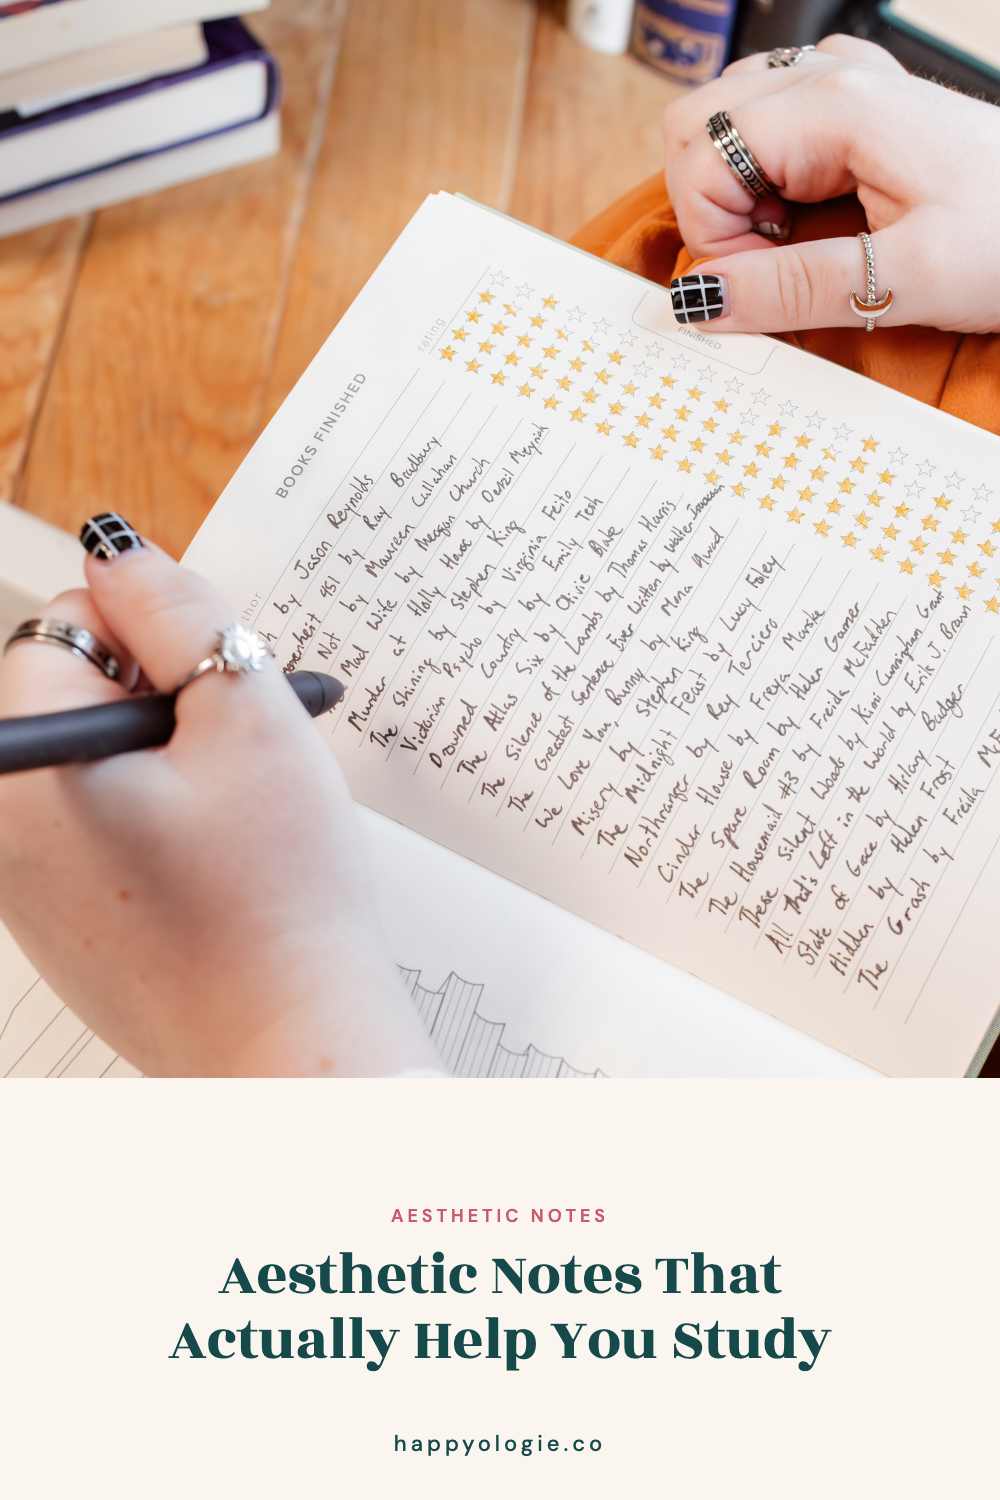 BOOKS FINISHED
rating
FINISHED
by Jason Reynolds
451 by Ray Bradbury
Not by Maureen Callahan
Mad Wife by Meagan Church
Murder at Holly House by Denzil Meyrick
The Shining by Stephen King
Victorian Psycho by Virginia Feito
Drowned Country by Emily Tesh
The Atlas Six by Olivie Blake
The Silence of the Lambs by Thomas Harris
The Greatest Sentence Ever Written by Walter Isaacson
We Love You, Bunny by Mona Awad
Misery by Stephen King
The Midnight Feast by Lucy Foley
Northranger by Rey Terciero
Cinder House by Freya Marske
The Spare Room by Helen Garner
The Housemaid #3 by Freida McFadden
These Silent Woods by Kimi Cunningham Grant
All That's Left in the World by Erik J. Brown
State of Grace by Hilary Badger
Hidden by Helen Frost
The Crash by Freida
AESTHETIC NOTES
Aesthetic Notes That
Actually Help You Study
happyologie.co